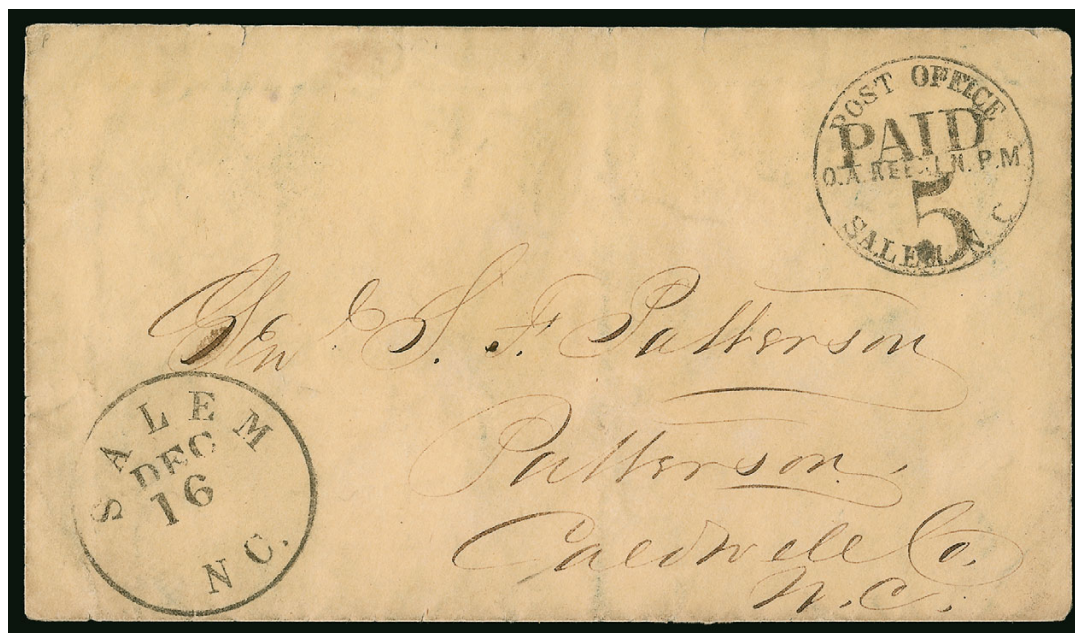 POST OFFICE
PAID
O.A. KEEHLN. P.M
5
SALEM. N C
Genl. S. F. Patterson
Patterson.
Caldwell Co.
N.C.
SALEM
DEC
16
N C.